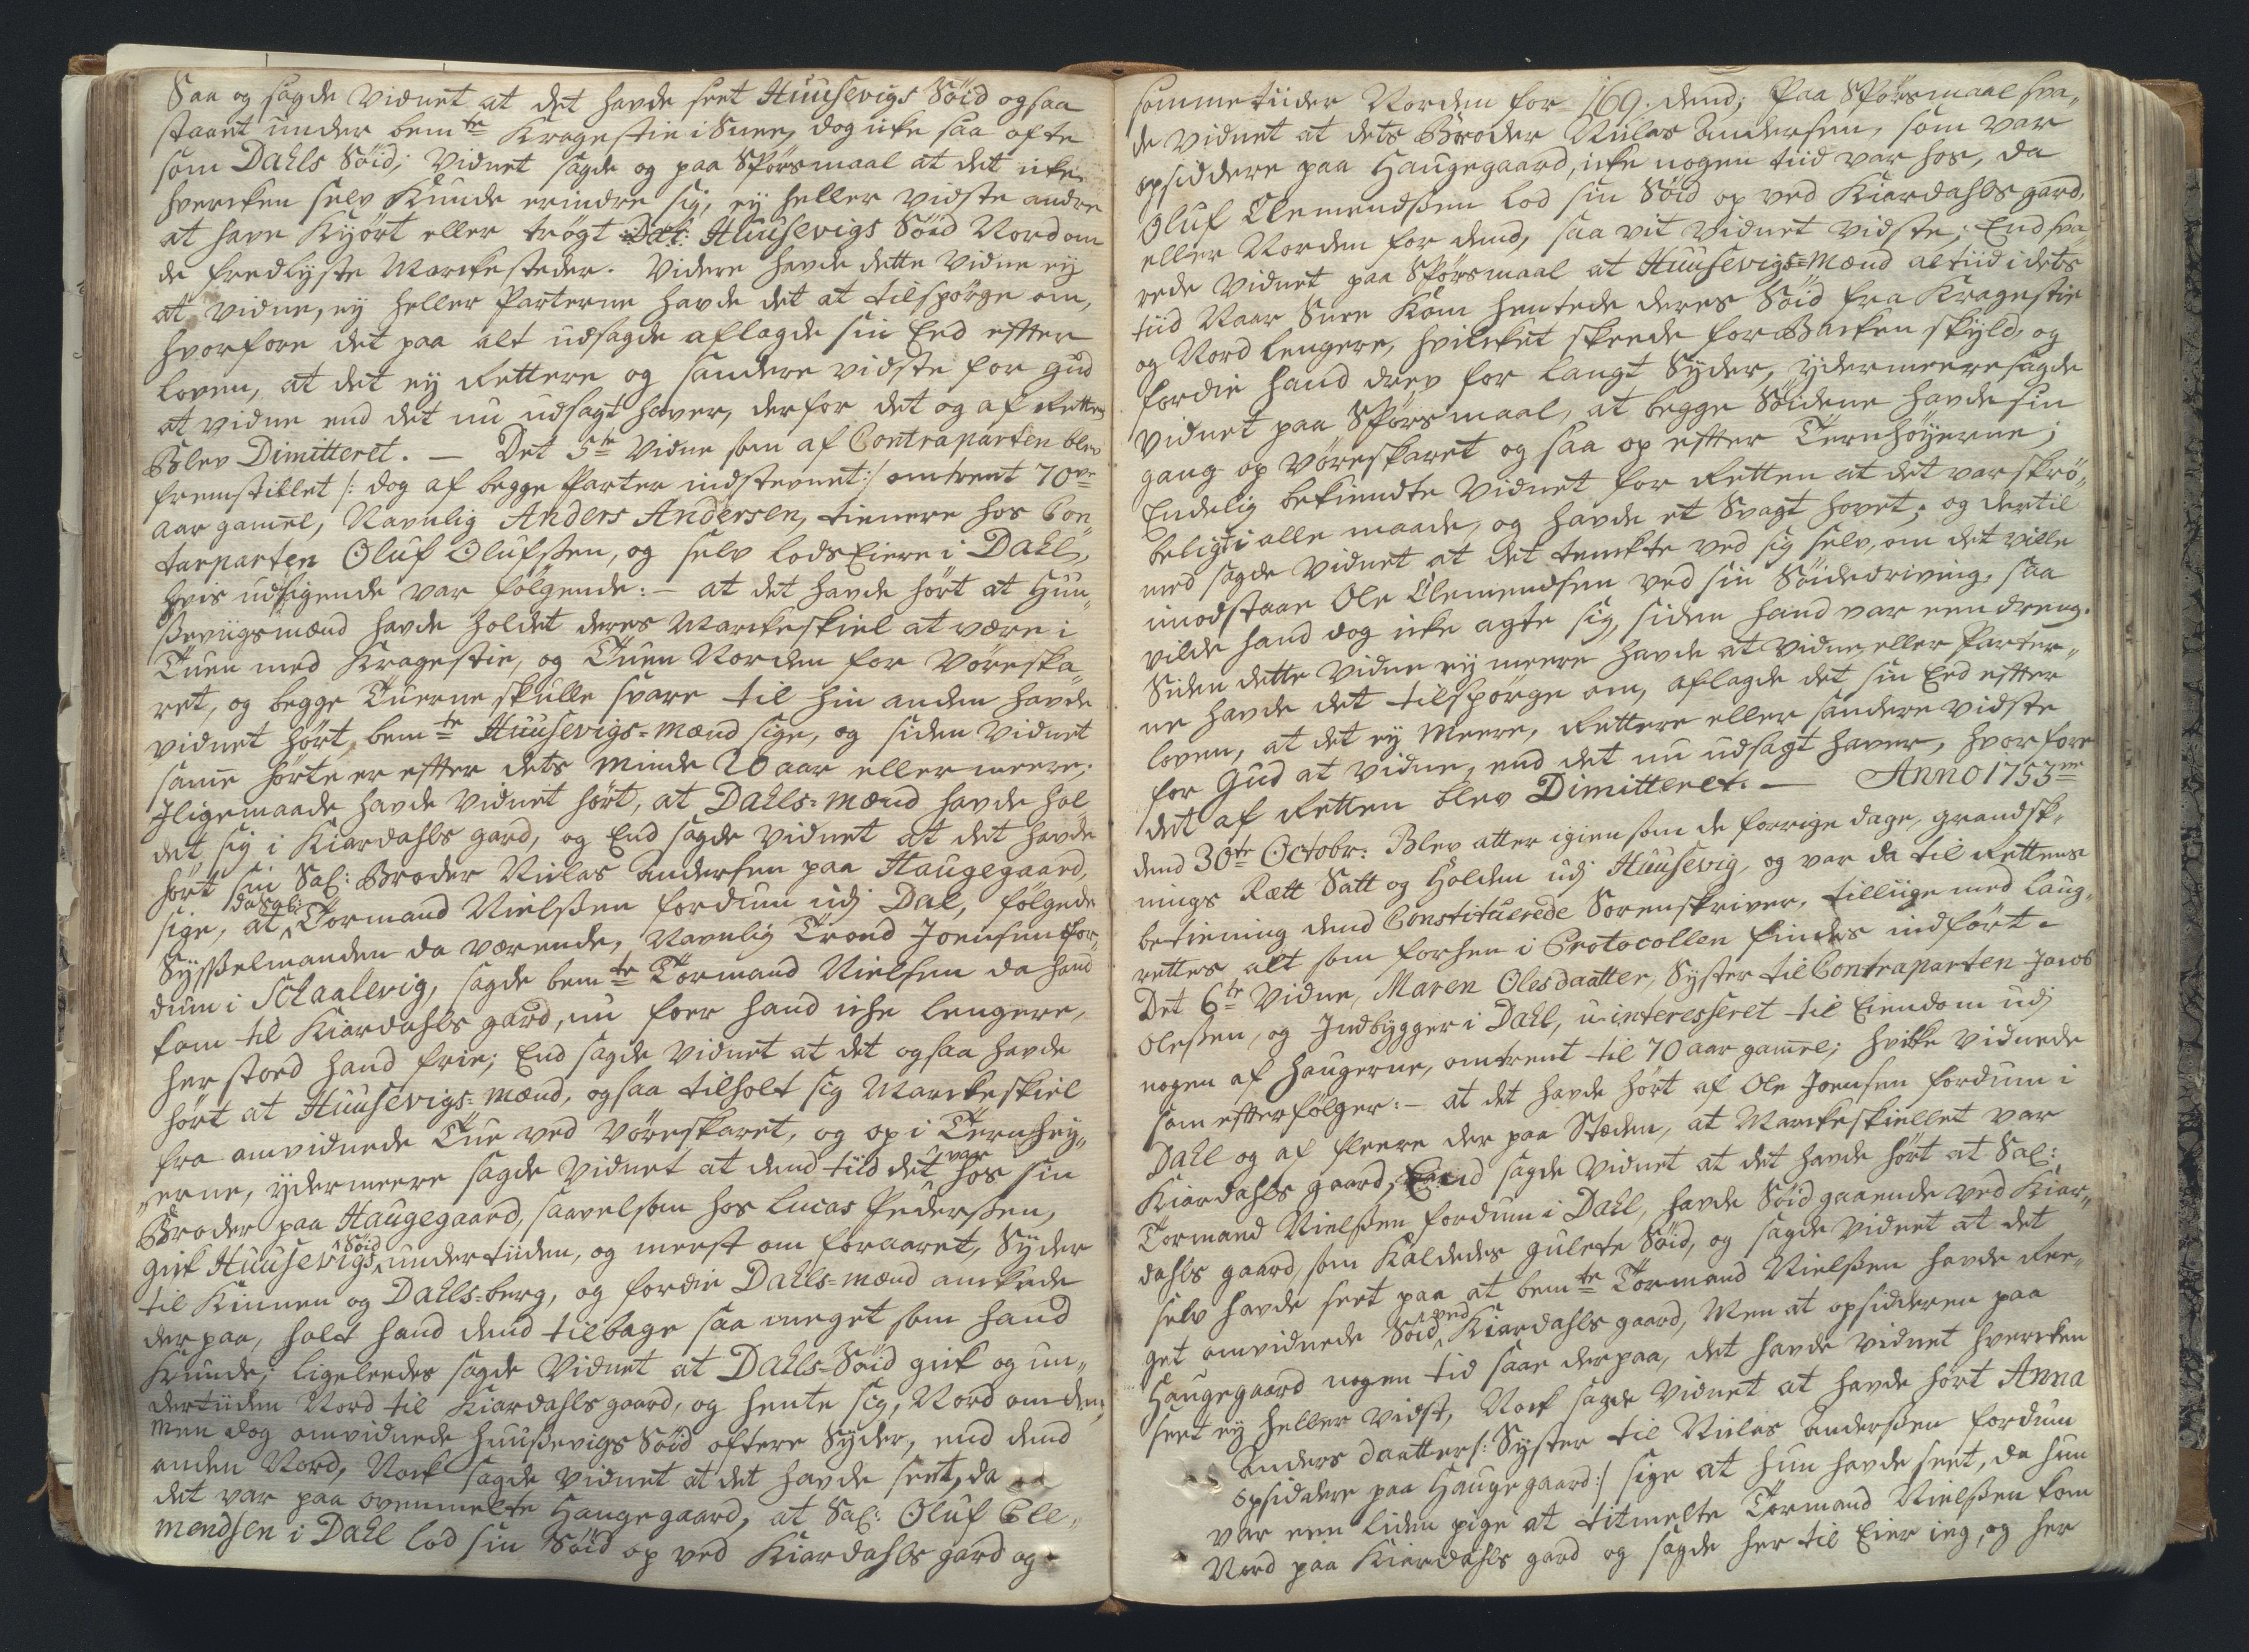 Saa og sagde Vidnet at det havde seet Huusevigs Söid ogsaa
staaet under bemte Kragestie i Snee, dog icke saa ofte
som Dahls Söid; Vidnet sagde og paa Spörsmaal at det icke
hvercken selv Kunde erindre sig, ey heller vidste andre
at have Kyört eller trögt Huusevigs Söid Nord om
de fredlyste Marckesteder. Videre havde dette Vidne ey
at vidne, ey heller Parterne havde det at tilspörge om,
hvorfore det paa alt udsagde aflagde sin Eed effter
loven, at det ey Rettere og sandere vidste for Gud
at vidne end det nu udsagt haver, derfor det og af Retten
Blev Dimitteret. — Det 5te Vidne som af Contraparten blev
fremstillet /: dog af begge Parter indstevnet:/ omtrent 70ve
aar gamel, Navnlig Anders Andersen, tienere hos Con„
traparten Oluf Olufsen, og selv lods Eiere i Dahl,
hvis udsigende var fölgende: – at det havde hört at Huu„
ßeviigsmænd havde holdet deres Marckeskiel at være i
Tuen med Kragestie, og Tuen Norden for Vöreska„
ret, og begge Tuerne skulle svare til hin anden havde
vidnet hört, bemte Huusevigs=mænd sige, og siden vidnet
same hörte er effter dets minde 20 aar eller meere;
Iligemaade havde Vidnet hört, at Dahls=mænd havde hol
det, sig i Kiardahls gard, og End sagde Vidnet at det havde
hört sin Sal: Broder Niclas Andersen paa Haugegaard,
sige, at Tormand Nielßen fordum udj Dal, fölgede
Syßelmanden da værende, Navnlig Trond Joensen for„
dum i Schaalevig, sagde bemte Tormand Nielsen da hand
kom til Kiardahls gard, nu foer hand iche lengere,
her stoed hand frie; End sagde Vidnet at det ogsaa havde
hört at Huusevigs=mænd, ogsaa tilholt sig Marckeskiel
fra omvidnede Tue ved Vöreskaret, og op i Ternhöy„
„erne, ydermeere sagde Vidnet at dend tiid det var hos sin
Broder paa Haugegaard, saavelsom hos Lucas Pederßen,
gick Huusevigs Söid undertiiden, og meest om foraaret, Syder
til Kinnen og Dahls=berg, og fordie Dahls=mænd anckede
der paa, holdt hand dend tilbage saa meget som hand
Kunde; ligeleedes sagde Vidnet at Dahls=Söid gick og un„
dertiiden Nord til Kiardahls gaard, og hente sig, Nord om den,
men dog omvidnede Huußevigs Söid oftere Syder, end dend
anden Nord, Nock sagde vidnet at det havde seet, da
det var paa ovenmelte Haugegaard, at Sal: Oluf Cle„
mendsen i Dahl lod sin Söid op ved Kiardahls gard og
sommetiider Norden for 169. dend; Paa Spörsmaal sva„
de Vidnet at dets Broder Niclas Andersen, som var
opsiddere paa Haugegaard, icke nogen tiid var hos, da
Oluf Clemendßen lod sin Söid op ved Kiardahls gard,
eller Norden for dend, saa vit vidnet vidste; End sva„
rede Vidnet paa Spörsmaal at Huusevigs=mænd altiid i dets
tiid Naar Snee Kom hentede deres Söid fra Kragestie
og Nord lengere, hvilcket skeede for Bæcken skyld, og
fordie hand drev for langt Syder, ydermeere sagde
Vidnet paa Spörsmaal, at begge Söidene havde sin
gang op Vöreskaret og saa op effter Ternhöyerne;
Endelig bekiendte Vidnet for Retten at det var skrö„
beligt i alle maade, og havde et Svagt hovet; og dertil
med sagde Vidnet at det tenckte ved sig selv, om det ville
imodstaae Ole Clemendsen ved sin Söidedriving, saa
vilde hand dog icke agte sig, siden hand var een dreng.
Siden dette Vidne ey meere havde at vidne eller Parter„
ne havde det tilspörge om, aflagde det sin Eed effter
loven, at det ey Meere, Rettere eller sandere vidste
for Gud at vidne, end det nu udsagt haver, hvorfore
det af Retten blev Dimitteret. — Anno 1753ve
dend 30te Octobr: Blev atter igien som de forrige dage, grandsk„
nings Rætt Satt og Holden udj Huusevig, og var da til Rettens
betiening dend Constituerede Sorenskriver, tilliige med laug„
rettes alt som forhen i Protocollen findes indfört.
Det 6te Vidne, Maren Olesdaatter, Syster til Contraparten Jacob
Oleßen, og Indbygger i Dahl, u-interesseret til Eiendom udj
nogen af Haugerne, omtrent til 70 aar gamel; hvilke vidnede
som effterfölger: – at det havde hört af Ole Joensen fordum i
Dahl og af fleere der paa Stæden, at Marckeskiellet var
Kiardahls gaard, End sagde Vidnet at det havde hört at Sal:
Tormand Nielßen fordum i Dahl, havde Söid gaaende ved Kiar„
dahls gaard, som Kaldedes gulete Söid, og sagde Vidnet at det
selv havde seet paa at bemte Tormand Nielßen havde Ree„
get omvidnede Söid ved Kiardahls gaard, Men at opsidderen paa
Haugegaard nogen tid saae derpaa, det havde vidnet hvercken
seet ey heller vidst, Nock sagde Vidnet at havde hört Anna
Anders daatter/: Syster til Niclas Anderßen fordum
Opsiddere paa Haugegaard:/ sige at hun havde seet, da hun
var een liden pige at titmelte Tormand Nielßen kom
Nord paa Kiardahls gard og sagde her til Eier ieg, og her